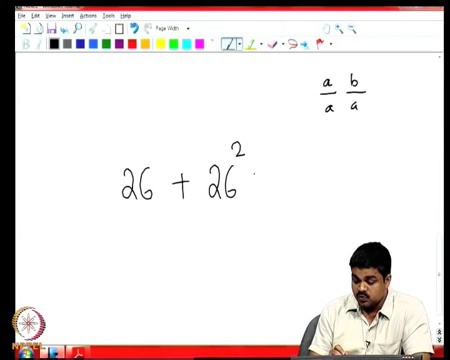 File Edit View Insert Actions Tools Help
Page Width
B I
a b
a a
26 + 26²